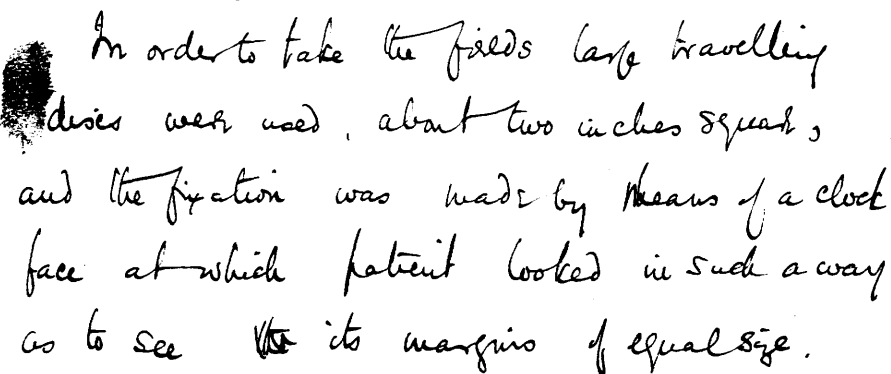 In order to take the fields large travelling
discs were used, about two inches square,
and the fixation was made by means of a clock
face at which patient looked in such a way
as to see its margins of equal size.